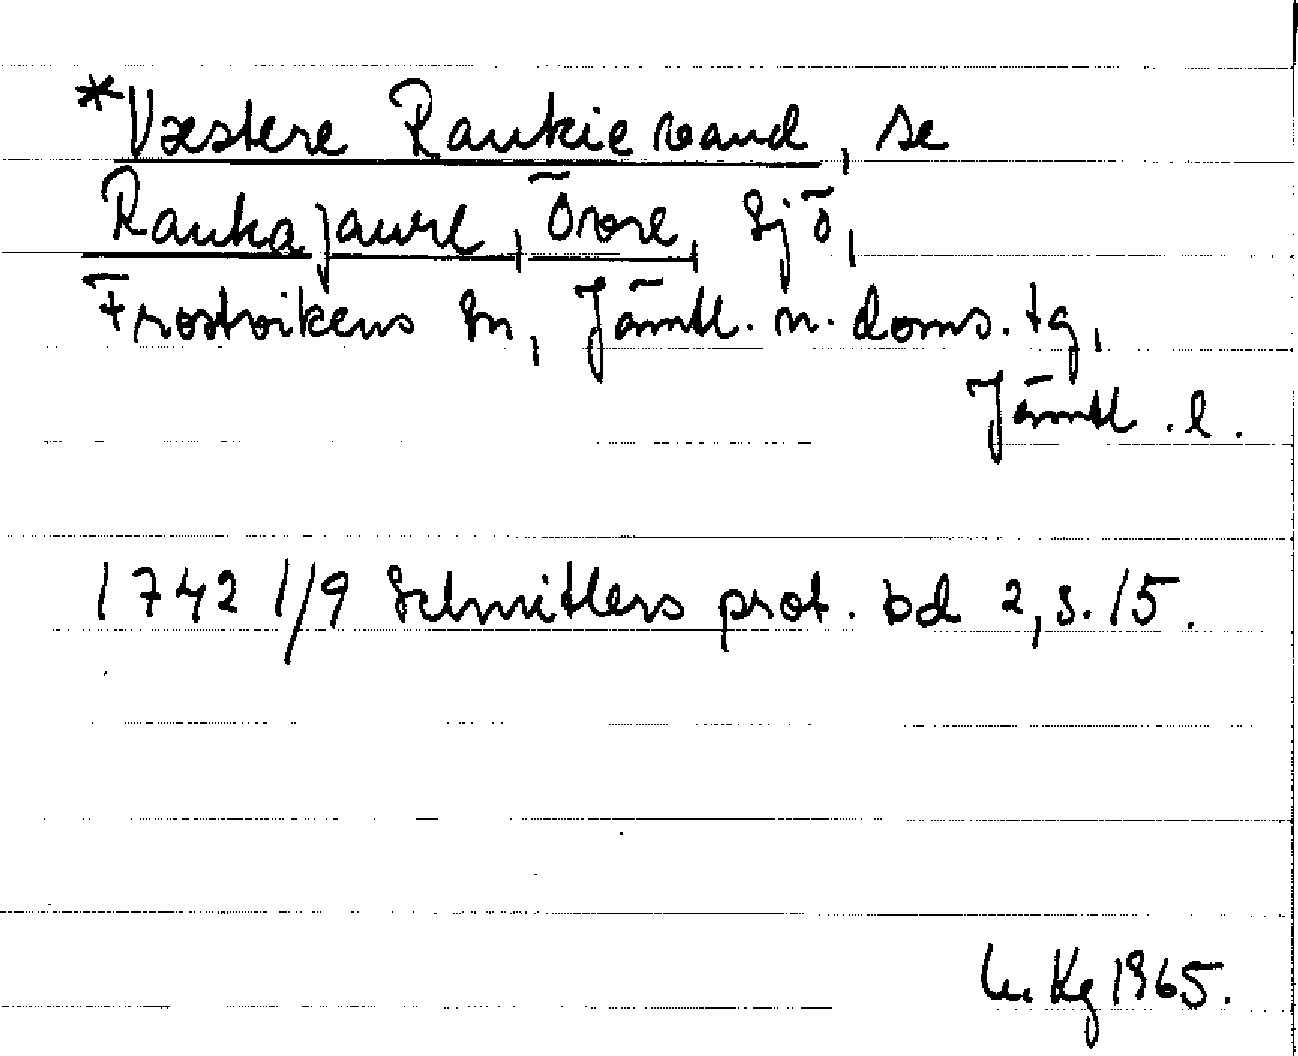 *Væstere Raukie vand, se
Raukajaure, Övre, sjö,
Frostvikens sn, Jämtl. n. doms. tg,
Jämtl. l.
1742 1/9 Schnitlers prot. bd 2, s. 15.
Kg 1965.